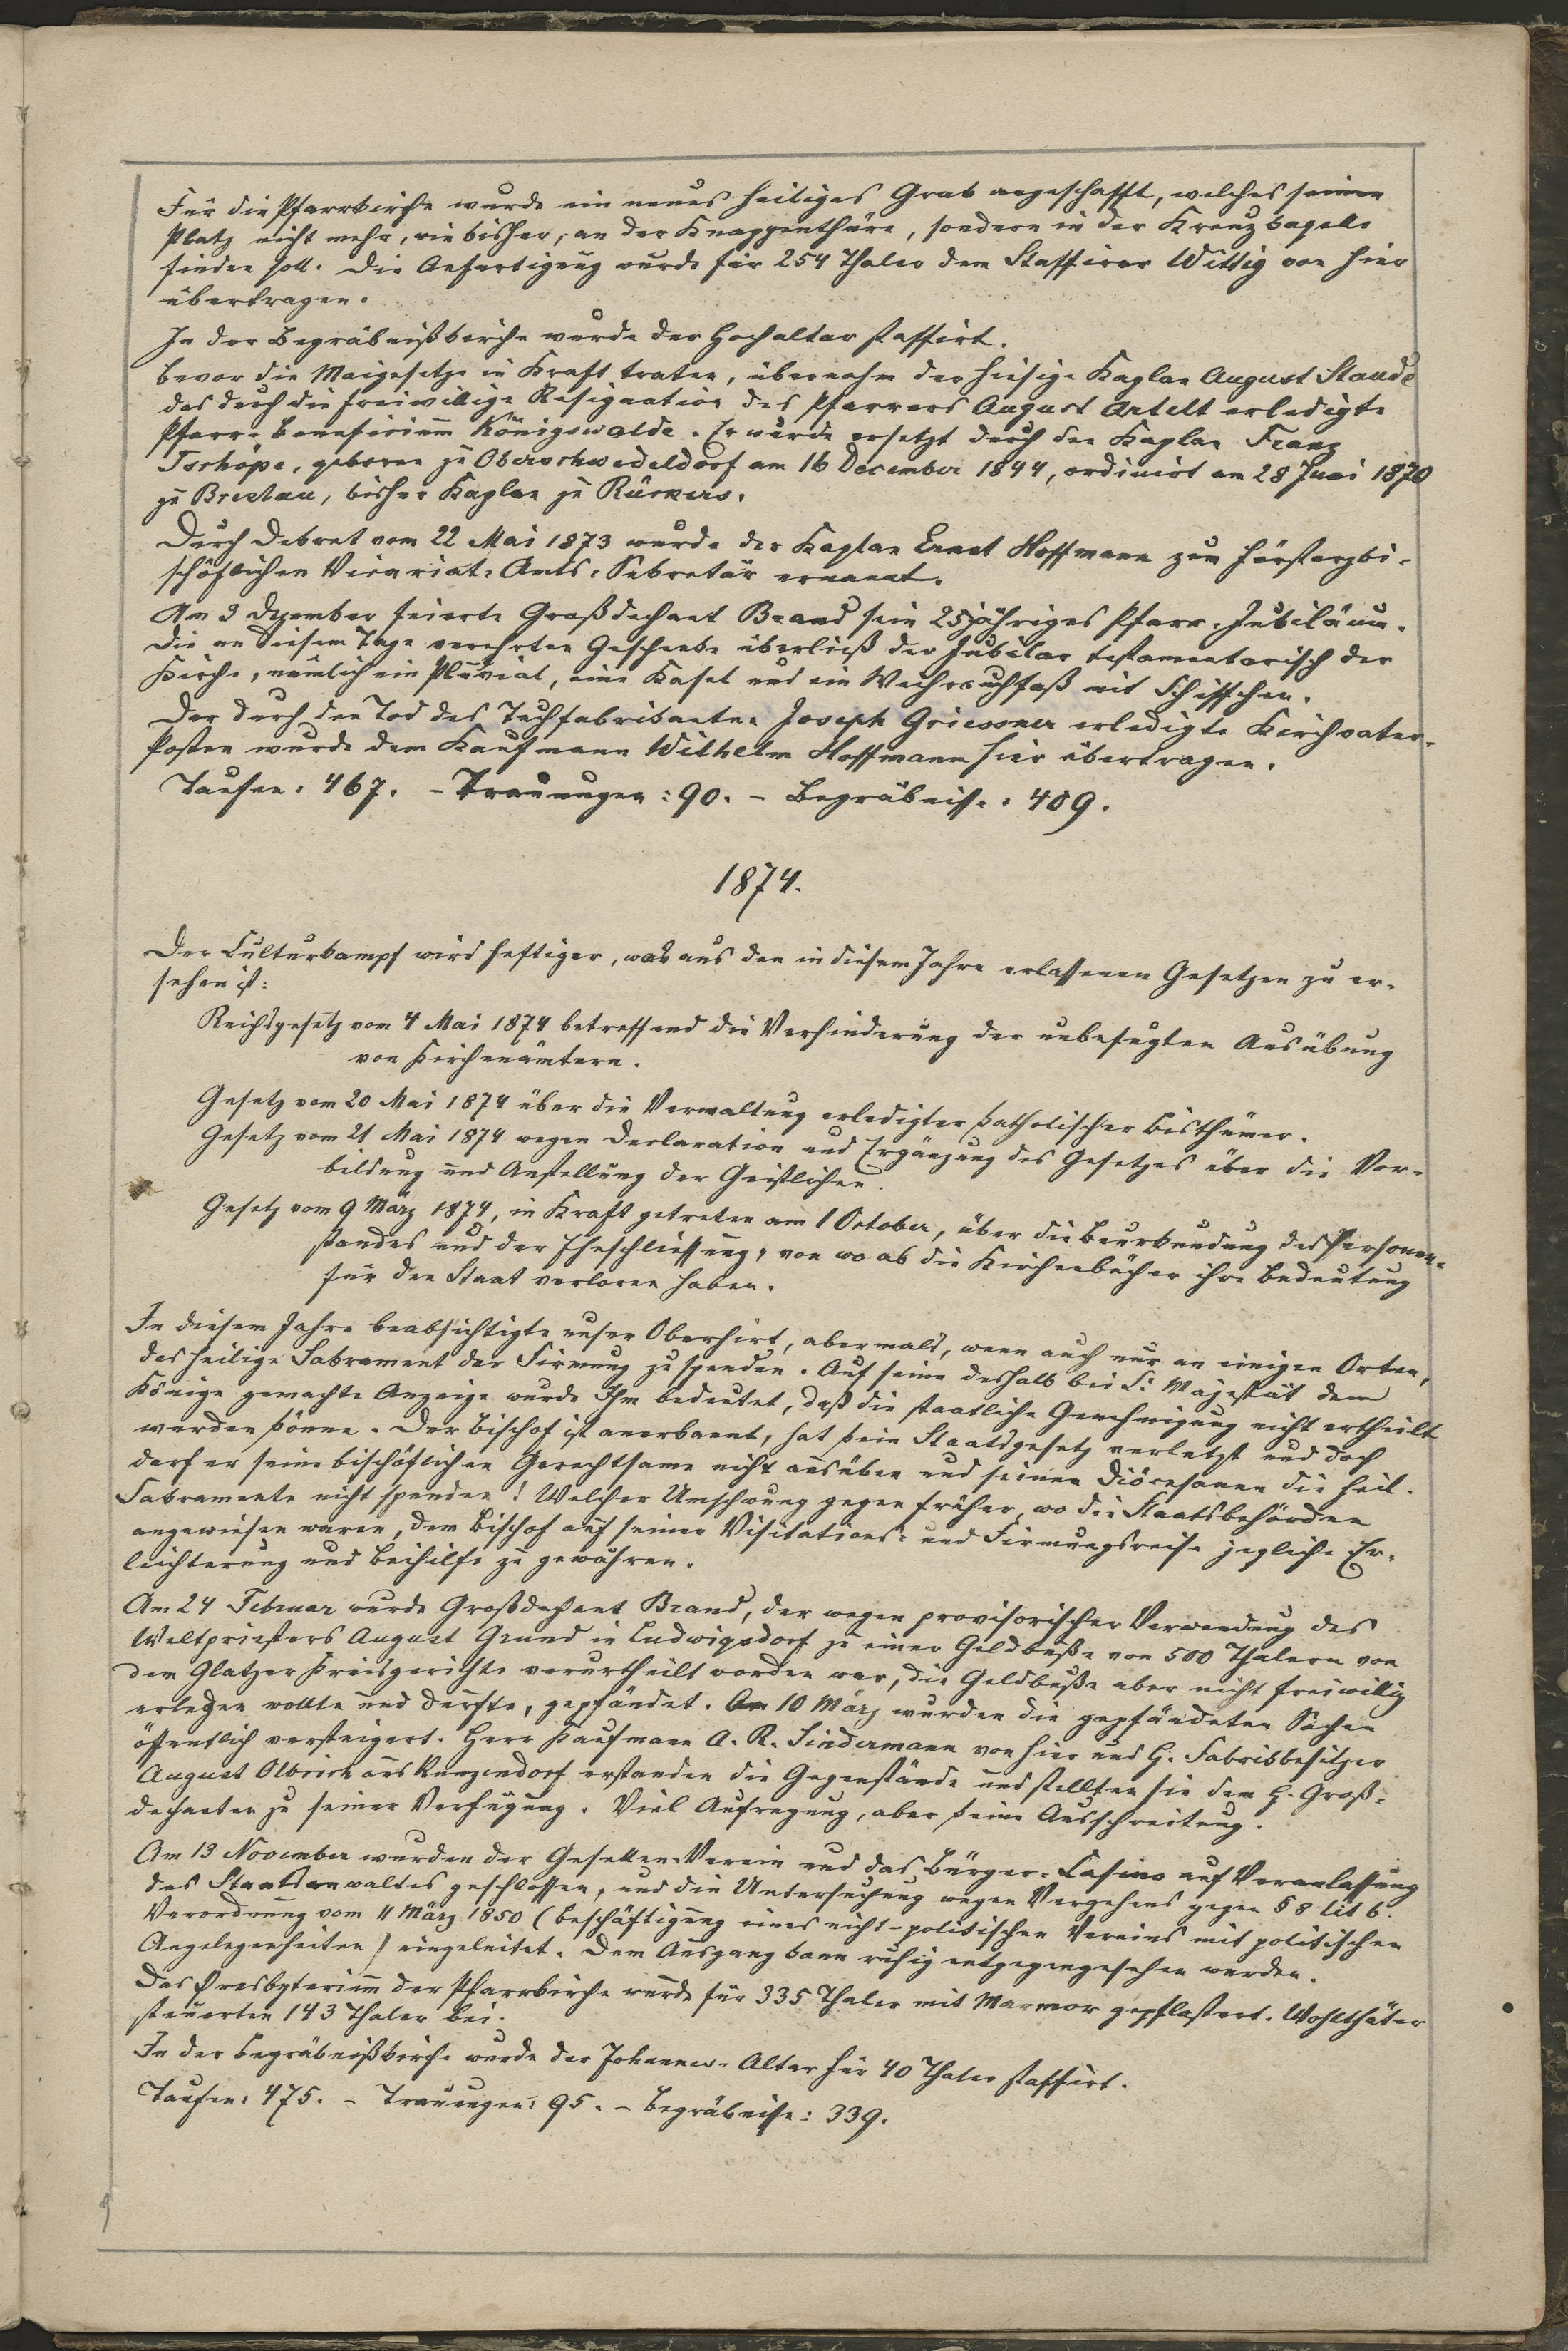 Für die Pfarrkirche wurde ein neues heiliges Grab angeschafft, welches seinen
Platz nicht mehr, wie bisher, an der Knappenthüre, sondern in der Kreuzkapelle
finden soll. Die Anfertigung wurde für 254 Thaler dem Staffirer Wittig von hier
übertragen.
In der Begräbnißkirche wurde der Hochaltar staffirt.
Bevor die Maigesetze in Kraft traten, übernahm der hiesige Kaplan August Staude
das durch die freiwillige Resignation des Pfarrers August Artelt erledigte
Pfarr-Beneficium Königswalde. Er wurde ersetzt durch den Kaplan Franz
Tschöpe, geboren zu Oberschwedeldorf am 16 December 1844, ordinirt am 28 Juni 1870
zu Breslau, bisher Kaplan zu Rückers.
Durch Dekret vom 22 Mai 1873 wurde der Kaplan Ernst Hoffmann zum fürsterzbi-
schöflichen Vicariat-Amts-Sekretär ernannt.
Am 3 Dezember feierte Großdechant Brand sein 25jähriges Pfarr-Jubiläum.
Die an diesem Tage verehrten Geschenke überließ der Jubilar testamentarisch der
Kirche, nämlich ein Pluvial, eine Kasel und ein Weihrauchfaß mit Schiffchen.
Der durch den Tod des Tuchfabrikanten Joseph Griessner erledigte Kirchvater-
Posten wurde dem Kaufmann Wilhelm Hoffmann hier übertragen.
Taufen: 467. – Trauungen: 90. – Begräbnisse: 409.
1874.
Der Culturkampf wird heftiger, was aus den in diesem Jahre erlassenen Gesetzen zu er-
sehen ist:
Reichsgesetz vom 4 Mai 1874 betreffend die Verhinderung der unbefugten Ausübung
von Kirchenämtern.
Gesetz vom 20 Mai 1874 über die Verwaltung erledigter katholischer Bisthümer.
Gesetz vom 21 Mai 1874 wegen Declaration und Ergänzung des Gesetzes über die Vor-
bildung und Anstellung der Geistlichen.
Gesetz vom 9 März 1874, in Kraft getreten am 1 October, über die Beurkundung des Personen-
standes und der Eheschliessung, von wo ab die Kirchenbücher ihre Bedeutung
für den Staat verloren haben.
In diesem Jahre beabsichtigte unser Oberhirt, abermals, wenn auch nur an einigen Orten,
das heilige Sakrament der Firmung zu spenden. Auf seine deshalb bei Sr Majestät dem
Könige gemachte Anzeige wurde Ihm bedeutet, daß die staatliche Genehmigung nicht ertheilt
werden könne. Der Bischof ist anerkannt, hat kein Staatsgesetz verletzt und doch
darf er seine bischöflichen Gerechtsame nicht ausüben und seinen Diöcesanen die heil.
Sakramente nicht spenden! Welcher Umschwung gegen früher, wo die Staatsbehörden
angewiesen waren, dem Bischof auf seiner Visitations- und Firmungsreise jegliche Er-
leichterung und Beihilfe zu gewähren.
Am 24 Februar wurde Großdechant Brand, der wegen provisorischer Verwendung des
Weltpriesters August Grund in Ludwigsdorf zu einer Geldbuße von 500 Thalern von
dem Glatzer Kreisgerichte verurtheilt worden war, die Geldbuße aber nicht freiwillig
erlegen wollte und durfte, gepfändet. Am 10 März wurden die gepfändeten Sachen
öffentlich versteigert. Herr Kaufmann A. R. Sindermann von hier und H. Fabrikbesitzer
August Olbrich aus Kunzendorf erstanden die Gegenstände und stellten sie dem H. Groß-
dechanten zu seiner Verfügung. Viel Aufregung, aber keine Ausschreitung.
Am 13 November wurden der Gesellen-Verein und das Bürger-Casino auf Veranlassung
des Staatsanwaltes geschlossen, und die Untersuchung wegen Vergehens gegen § 8 lit b.
Verordnung vom 11 März 1850 (Beschäftigung eines nicht-politischen Vereins mit politischen
Angelegenheiten) eingeleitet. Dem Ausgang kann ruhig entgegengesehen werden.
Das Presbyterium der Pfarrkirche wurde für 335 Thaler mit Marmor gepflastert. Wohlthäter
steuerten 143 Thaler bei.
In der Begräbnißkirche wurde der Johannes-Altar für 40 Thaler staffirt.
Taufen: 475. – Trauungen: 95. – Begräbnisse: 339.